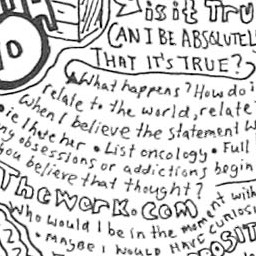 is it Tru
CAN I BE ABSOLUTEL
THAT IT'S TRUE?
What happens? How do i
relate to the world, relate
When I believe the statement w
ie I hate her • List oncology • Full
ny obsessions or addictions begin
you believe that thought?
TheWork.com
Who would I be in the moment with
• MAYBE I WOULD HAVE CURIOSI
POSIT